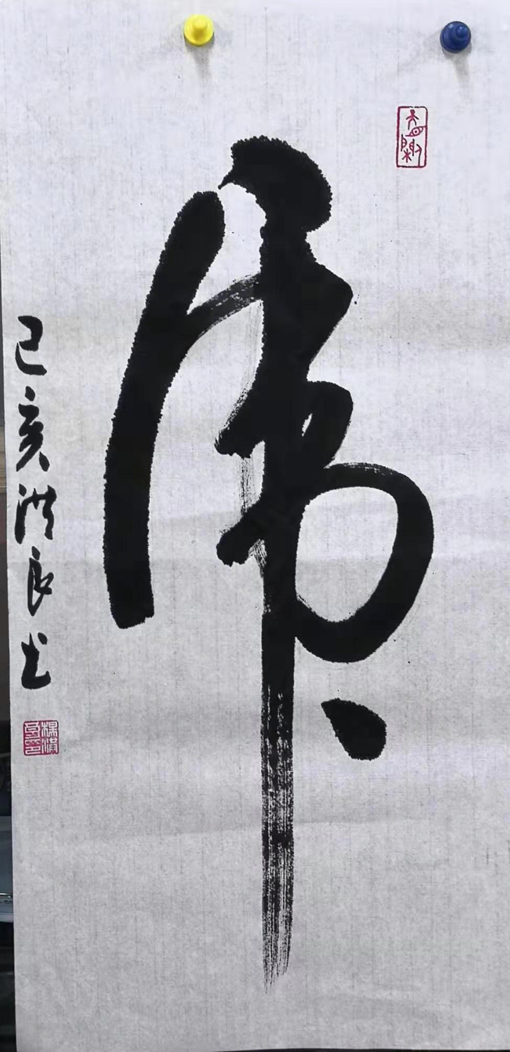 虎
己亥洪良书